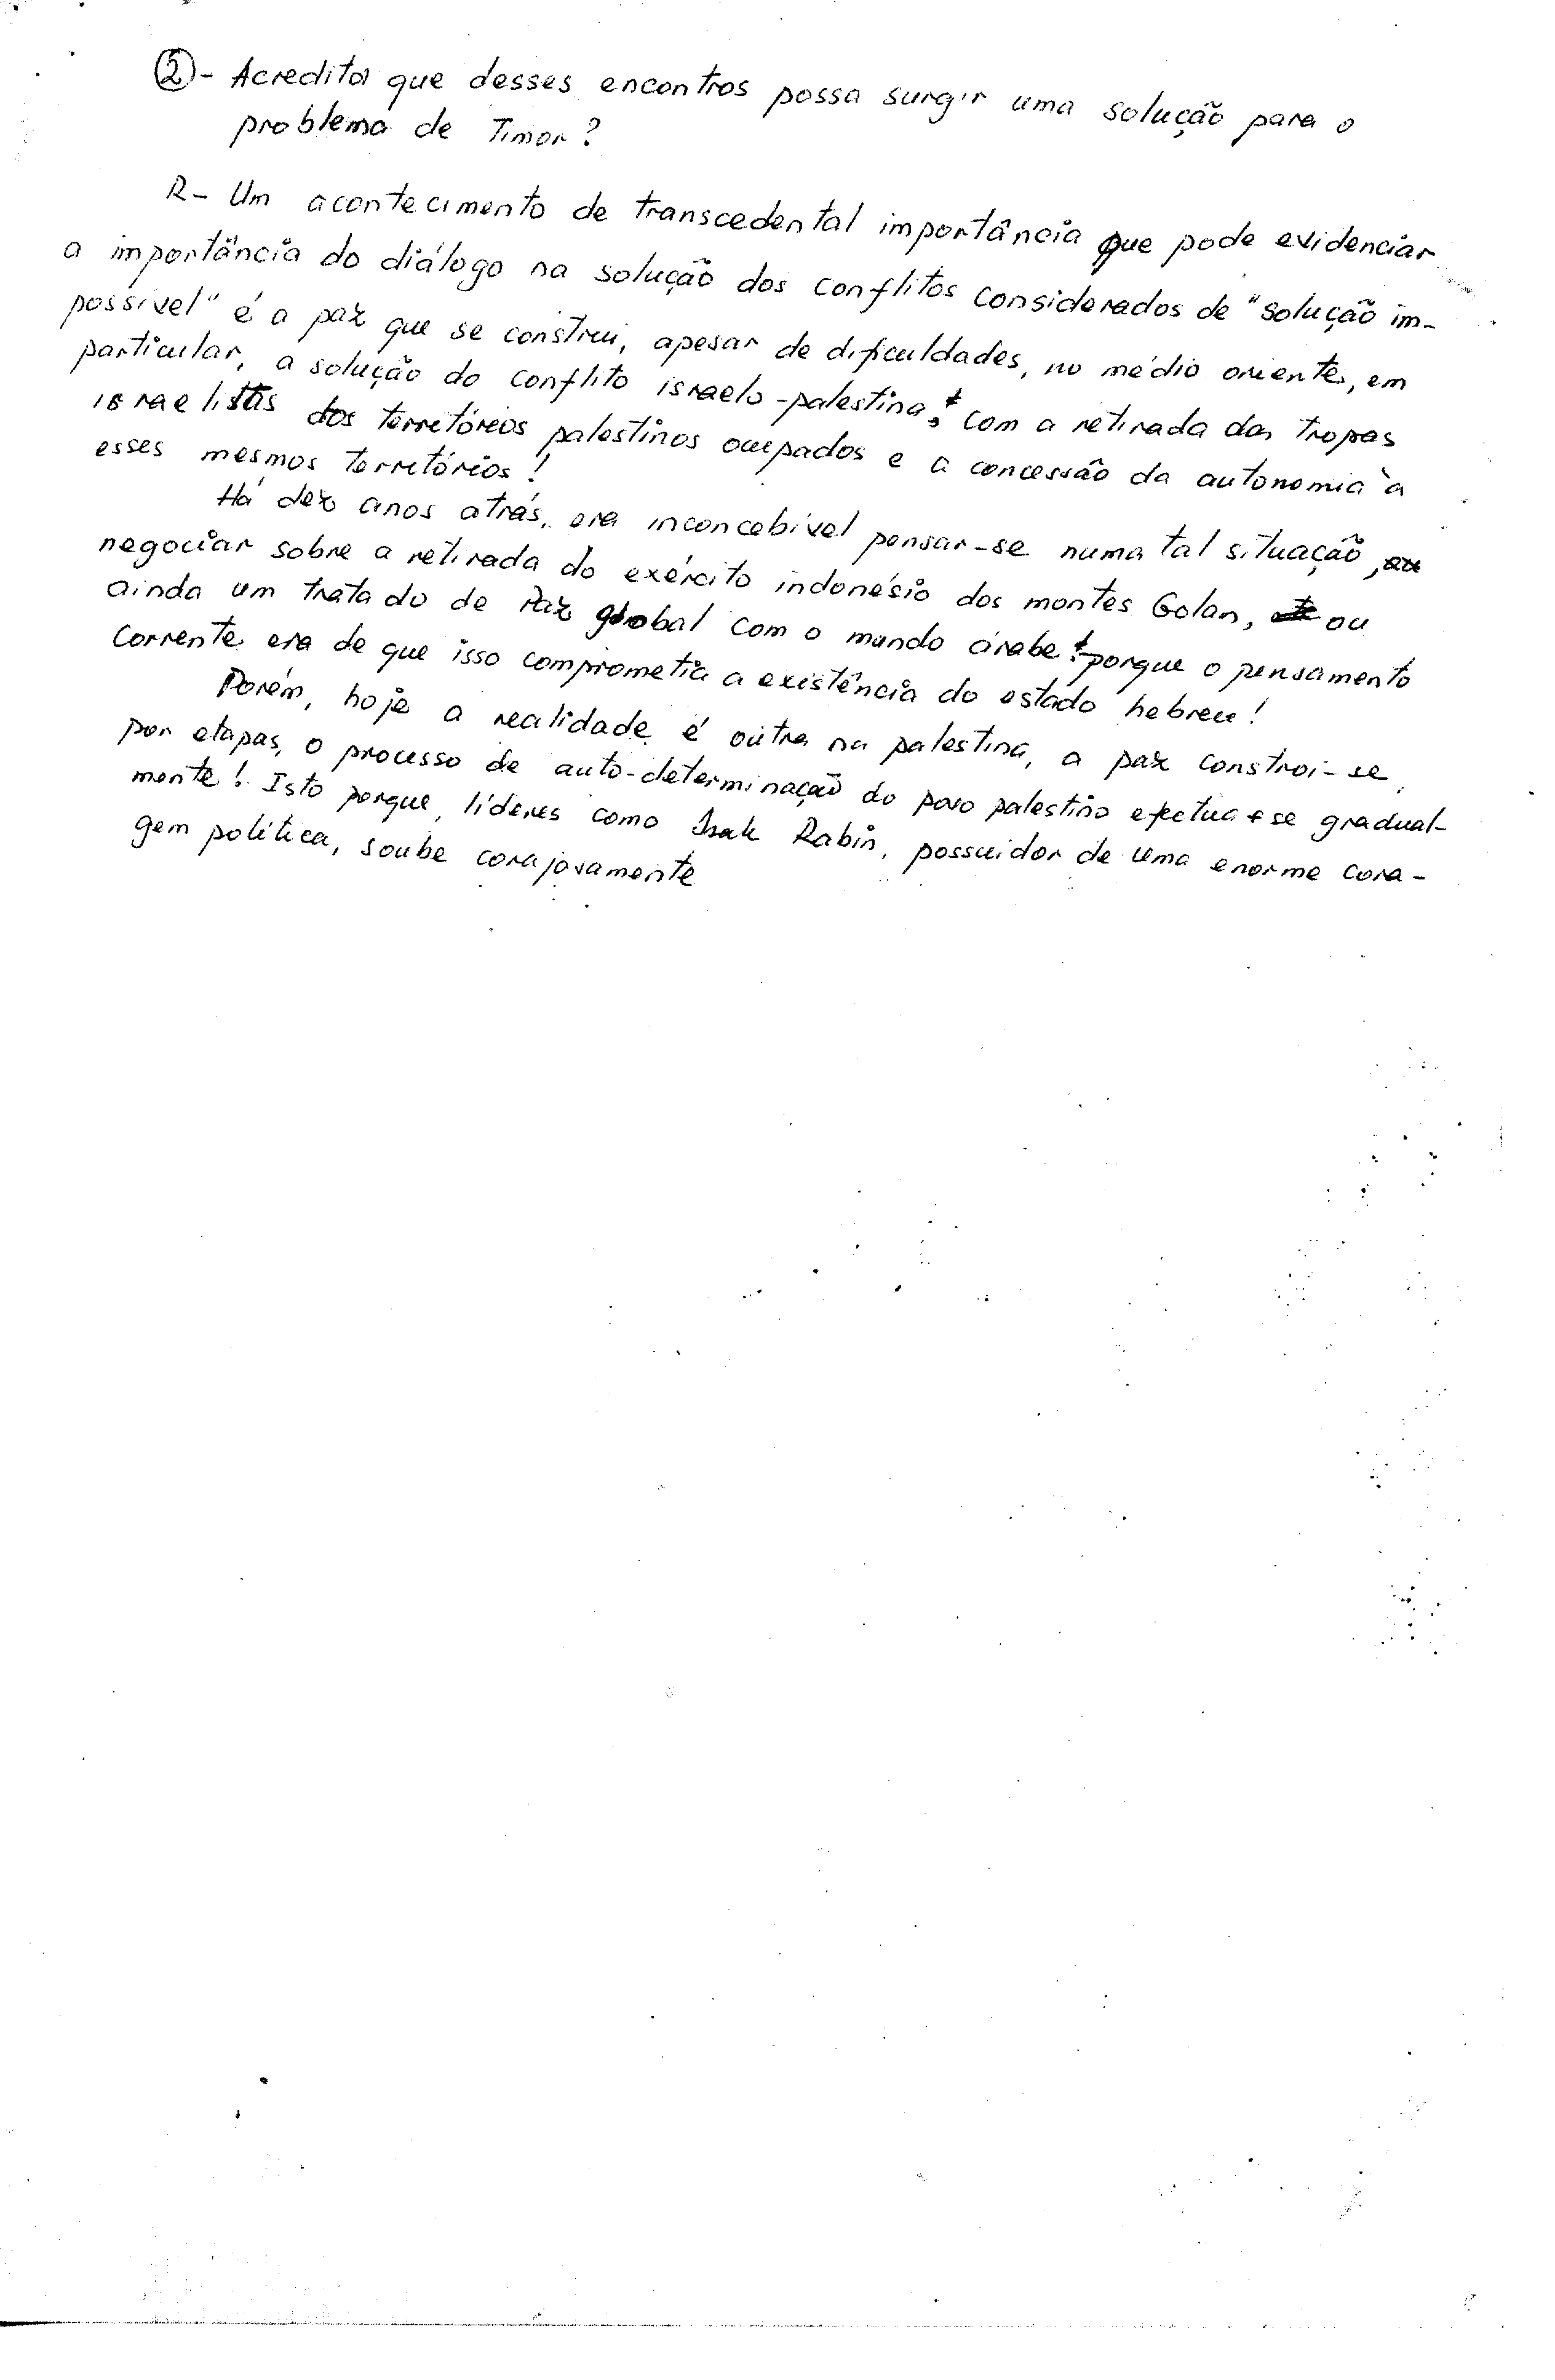 ②- Acredita que desses encontros possa surgir uma solução para o
problema de Timor?
R- Um acontecimento de transcedental importância que pode evidenciar
a importância do diálogo na solução dos conflitos considerados de "solução im-
possível" é a paz que se construi, apesar de dificuldades, no médio oriente, em
particular, a solução do conflito israelo-palestina, com a retirada das tropas
israelistas dos territórios palestinos ocupados e a concessão da autonomia à
esses mesmos territórios!
Há dez anos atrás, era inconcebível pensar-se numa tal situação,
negociar sobre a retirada do exército indonésio dos montes Golan, ou
ainda um tratado de Paz global com o mundo árabe! porque o pensamento
corrente era de que isso comprometia a existência do estado hebreu!
Porém, hoje a realidade é outra na palestina, a paz constroi-se
por etapas, o processo de auto-determinação do povo palestino efectua-se gradual-
mente! Isto porque, líderes como Isak Rabin, possuidor de uma enorme cora-
gem política, soube corajosamente